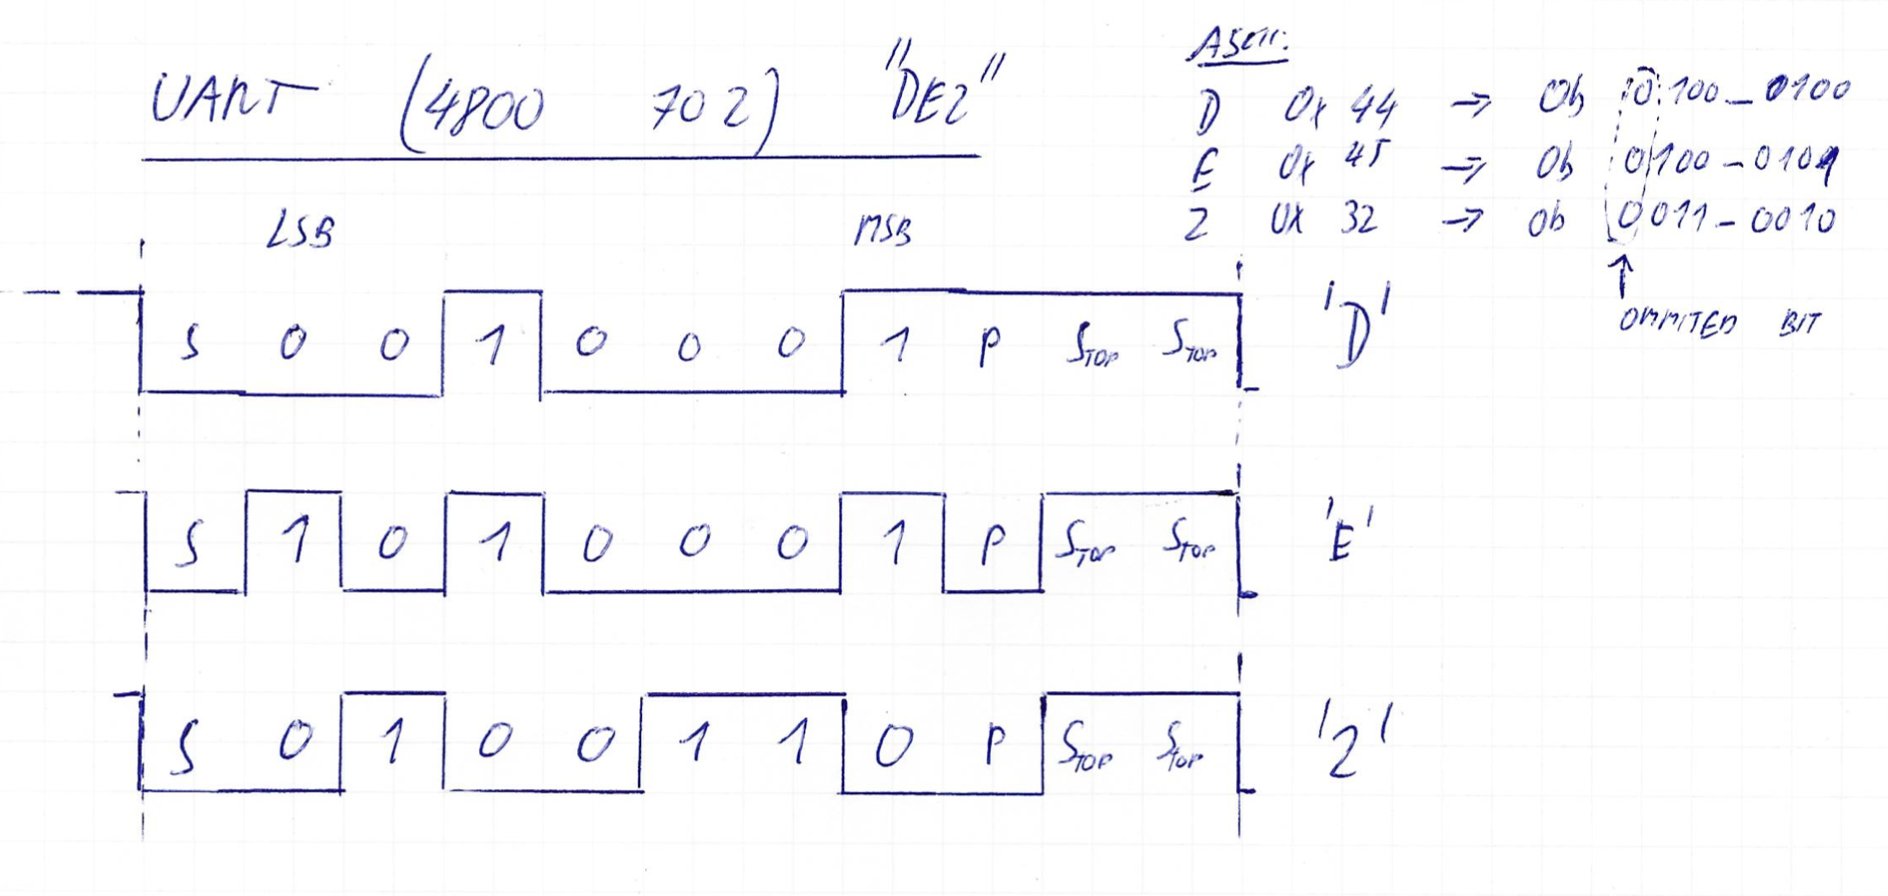 UART (4800 702) "DE2"
ASCII:
D 0x 44 → 0b 0100_0100
E 0x 45 → 0b 0100-0101
2 0x 32 → 0b 0011-0010
OMMITED BIT
LSB MSB
S 0 0 1 0 0 0 1 P STOP STOP 'D'
S 1 0 1 0 0 0 1 P STOP STOP 'E'
S 0 1 0 0 1 1 0 P STOP STOP '2'